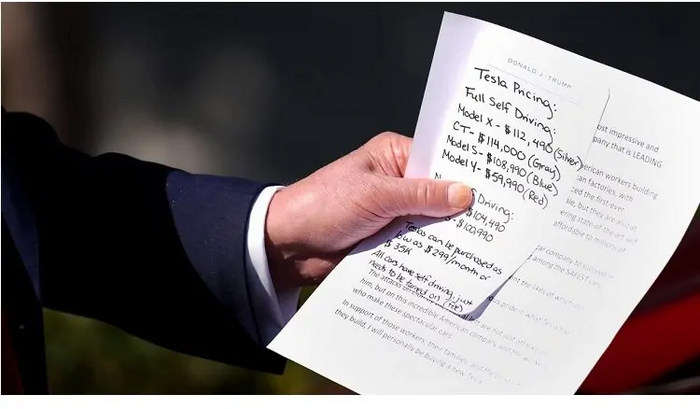 DONALD J. TRUMP
Tesla Pricing:
Full Self Driving:
Model X - $112,490 (Silver)
CT - $114,000 (Gray)
Model S - $108,990 (Blue)
Model Y - $59,990 (Red)
Driving:
$104,490
$100,990
Teslas can be purchased as
low as $299/month or
$35K
All cars have self driving, just
needs to be turned on (fee)
ost impressive and
pany that is LEADING
erican workers building
an factories, with
ced the first ever
le, but they are also at
ering state-of-the-art and
affordable to millions of
car company to
among the SAFEST
the likes of which
The attacks
him, but on this incredible American company and the
who make these spectacular cars.
In support of those workers, their families, and the
they build, I will personally be buying a new Tesla